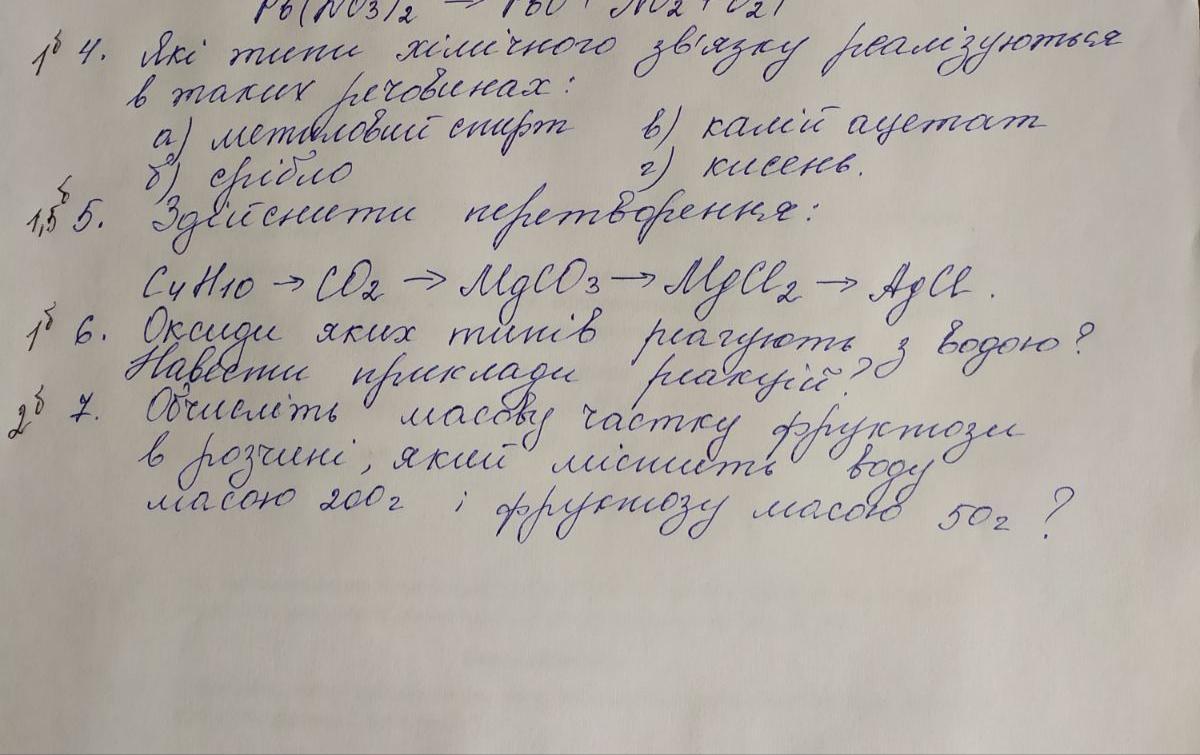 Pb(NO3)2 → PbO + NO2 + O2↑
1б 4. Які типи хімічного зв'язку реалізуються
в таких речовинах:
а) метиловий спирт в) калій ацетат
б) срібло г) кисень.
1,5б 5. Здійснити перетворення:
C4H10 → CO2 → MgCO3 → MgCl2 → AgCl.
1б 6. Оксиди яких типів реагують з водою?
Навести приклади реакцій?
2б 7. Обчисліть масову частку фруктози
в розчині, який містить воду
масою 200г і фруктозу масою 50г?